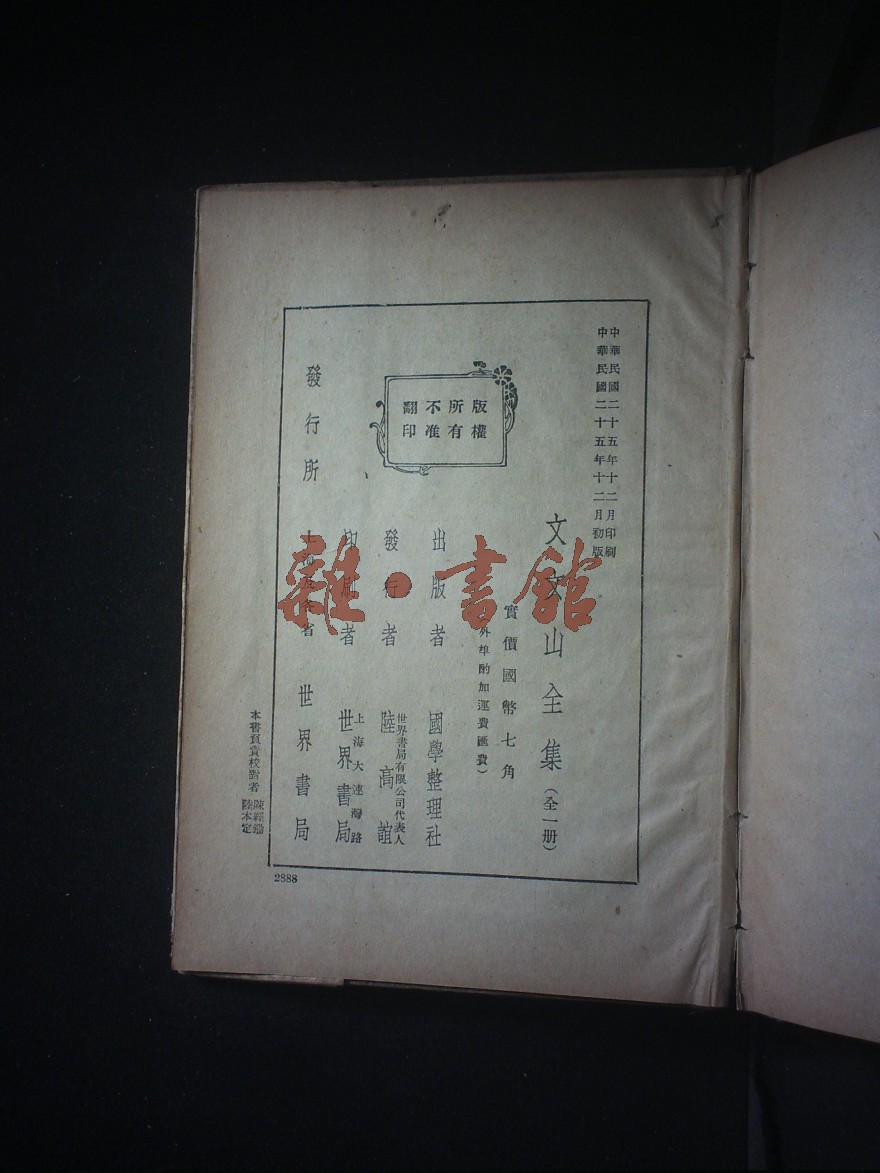 中華民國二十五年十二月印刷
中華民國二十五年十二月初版
文文山全集（全一册）
實價國幣七角
外埠酌加運費匯費）
版權
所有
不准
翻印
出版者 國學整理社
發行者 世界書局有限公司代表人 陸高誼
印刷者 上海大連灣路 世界書局
發行所 上海及各省 世界書局
本書負責校對者 陳 陸本定
2888
雜·書館